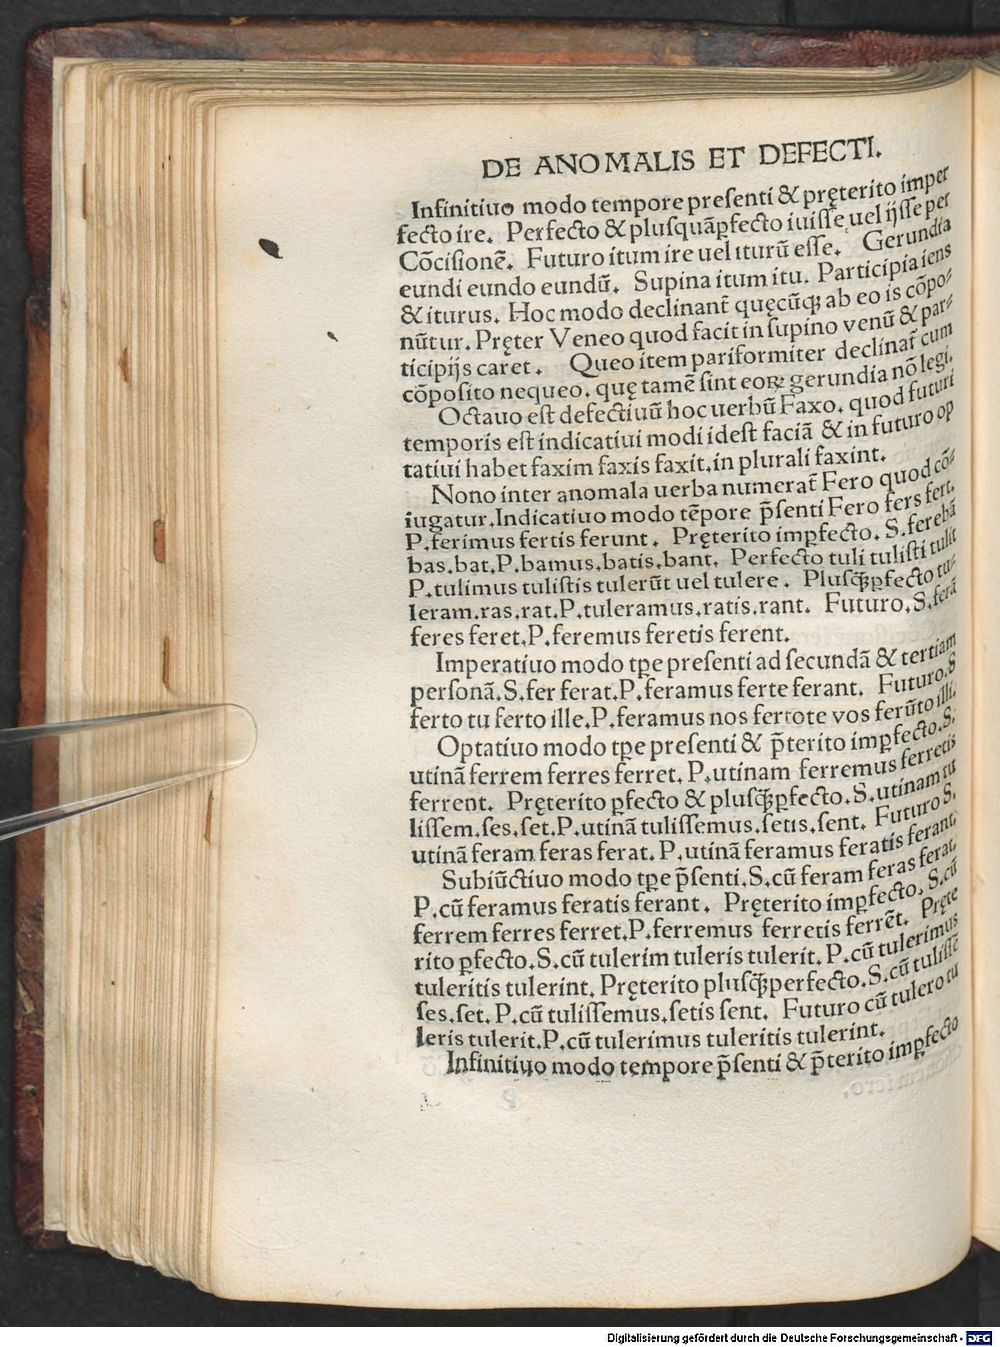 DE ANOMALIS ET DEFECTI.
Infinitiuo modo tempore preſenti & pręterito imper
fecto ire. Perfecto & pluſquāꝑfecto iuiſſe uel ijſſe per
Cōciſionē. Futuro itum ire uel iturū eſſe. Gerundia
eundi eundo eundū. Supina itum itu. Participia iens
& iturus. Hoc modo declinant̄ quęcūꝗ ab eo is cōpo⸗
nūtur. Pręter Veneo quod facit in ſupino venū & par⸗
ticipijs caret. Queo item pariformiter declinat̄ cum
cōpoſito nequeo. quę tamē ſint eoꝝ gerundia nō legi.
Octauo eſt defectiuū hoc uerbū Faxo. quod futuri
temporis eſt indicatiui modi ideſt faciā & in futuro op
tatiui habet faxim faxis faxit. in plurali faxint.
Nono inter anomala uerba numerat̄ Fero quod cō⸗
iugatur. Indicatiuo modo tēpore p̄ſenti Fero fers fert.
P. ferimus fertis ferunt. Pręterito imꝑfecto. S. ferebā
bas. bat. P. bamus. batis. bant. Perfecto tuli tuliſti tulit
P. tulimus tuliſtis tulerūt uel tulere. Pluſꝗ̄ꝑfecto tu⸗
leram. ras. rat. P. tuleramus. ratis. rant. Futuro. S. ferā
feres feret. P. feremus feretis ferent.
Imperatiuo modo tꝑe preſenti ad ſecundā & tertiam
perſonā. S. fer ferat. P. feramus ferte ferant. Futuro. S
ferto tu ferto ille. P. feramus nos fertote vos ferūto illi.
Optatiuo modo tꝑe preſenti & p̄terito imꝑfecto. S.
utinā ferrem ferres ferret. P. utinam ferremus ferretis
ferrent. Pręterito ꝑfecto & pluſꝗ̄ꝑfecto. S. utinam tu
liſſem. ſes. ſet. P. utinā tuliſſemus. ſetis. ſent. Futuro S.
utinā feram feras ferat. P. utinā feramus feratis ferant.
Subiūctiuo modo tꝑe p̄ſenti. S. cū feram feras ferat.
P. cū feramus feratis ferant. Pręterito imꝑfecto. S. cū
ferrem ferres ferret. P. ferremus ferretis ferrēt. Pręte
rito ꝑfecto. S. cū tulerim tuleris tulerit. P. cū tulerimus
tuleritis tulerint. Pręterito pluſꝗ̄perfecto. S. cū tuliſſē
ſes. ſet. P. cū tuliſſemus. ſetis ſent. Futuro cū tulero tu
leris tulerit. P. cū tulerimus tuleritis tulerint.
Infinitiuo modo tempore p̄ſenti & p̄terito imꝑfecto
Digitalisierung gefördert durch die Deutsche Forschungsgemeinschaft - DFG